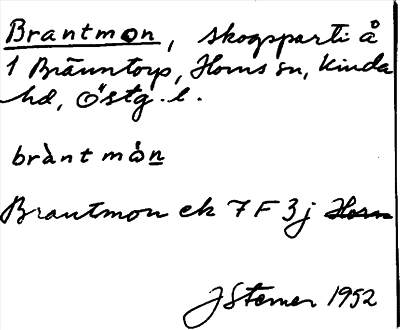 Brantmon, skogsparti å
1 Bränntorp, Horns sn, Kinda
hd, Östg. l.
bràntmò̀n
Brantmon ek 7F 3j Horn
JStemer 1952